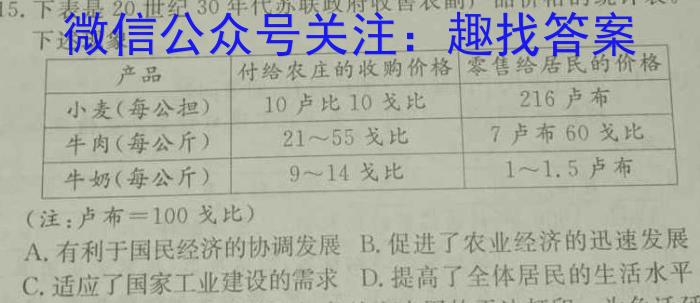 15.下表是20世纪30年代苏联政府收售农副产品价格的统计表。
下述现象
微信公众号关注：趣找答案
产品 付给农庄的收购价格 零售给居民的价格
小麦(每公担) 10卢比10戈比 216卢布
牛肉(每公斤) 21～55戈比 7卢布60戈比
牛奶(每公斤) 9～14戈比 1～1.5卢布
(注:卢布=100戈比)
A.有利于国民经济的协调发展 B.促进了农业经济的迅速发展
C.适应了国家工业建设的需求 D.提高了全体居民的生活水平